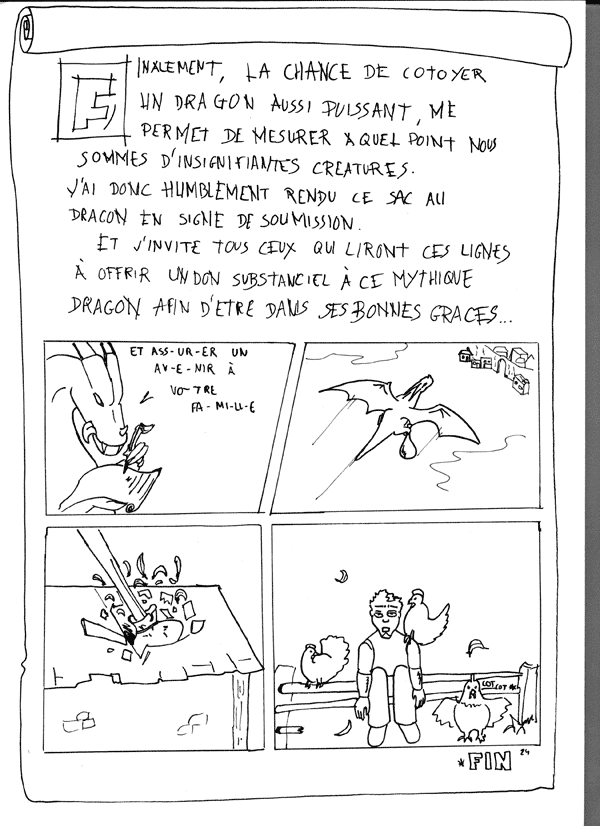 FINALEMENT, LA CHANCE DE COTOYER
UN DRAGON AUSSI PUISSANT, ME
PERMET DE MESURER À QUEL POINT NOUS
SOMMES D'INSIGNIFIANTES CREATURES.
J'AI DONC HUMBLEMENT RENDU LE SAC AU
DRAGON EN SIGNE DE SOUMISSION.
ET J'INVITE TOUS CEUX QUI LIRONT CES LIGNES
À OFFRIR UN DON SUBSTANCIEL À CE MYTHIQUE
DRAGON AFIN D'ETRE DANS SES BONNES GRACES...
ET ASS-UR-ER UN
AV-E-NIR À
VO-TRE
FA-MI-LL-E
COT
COT
*FIN
24